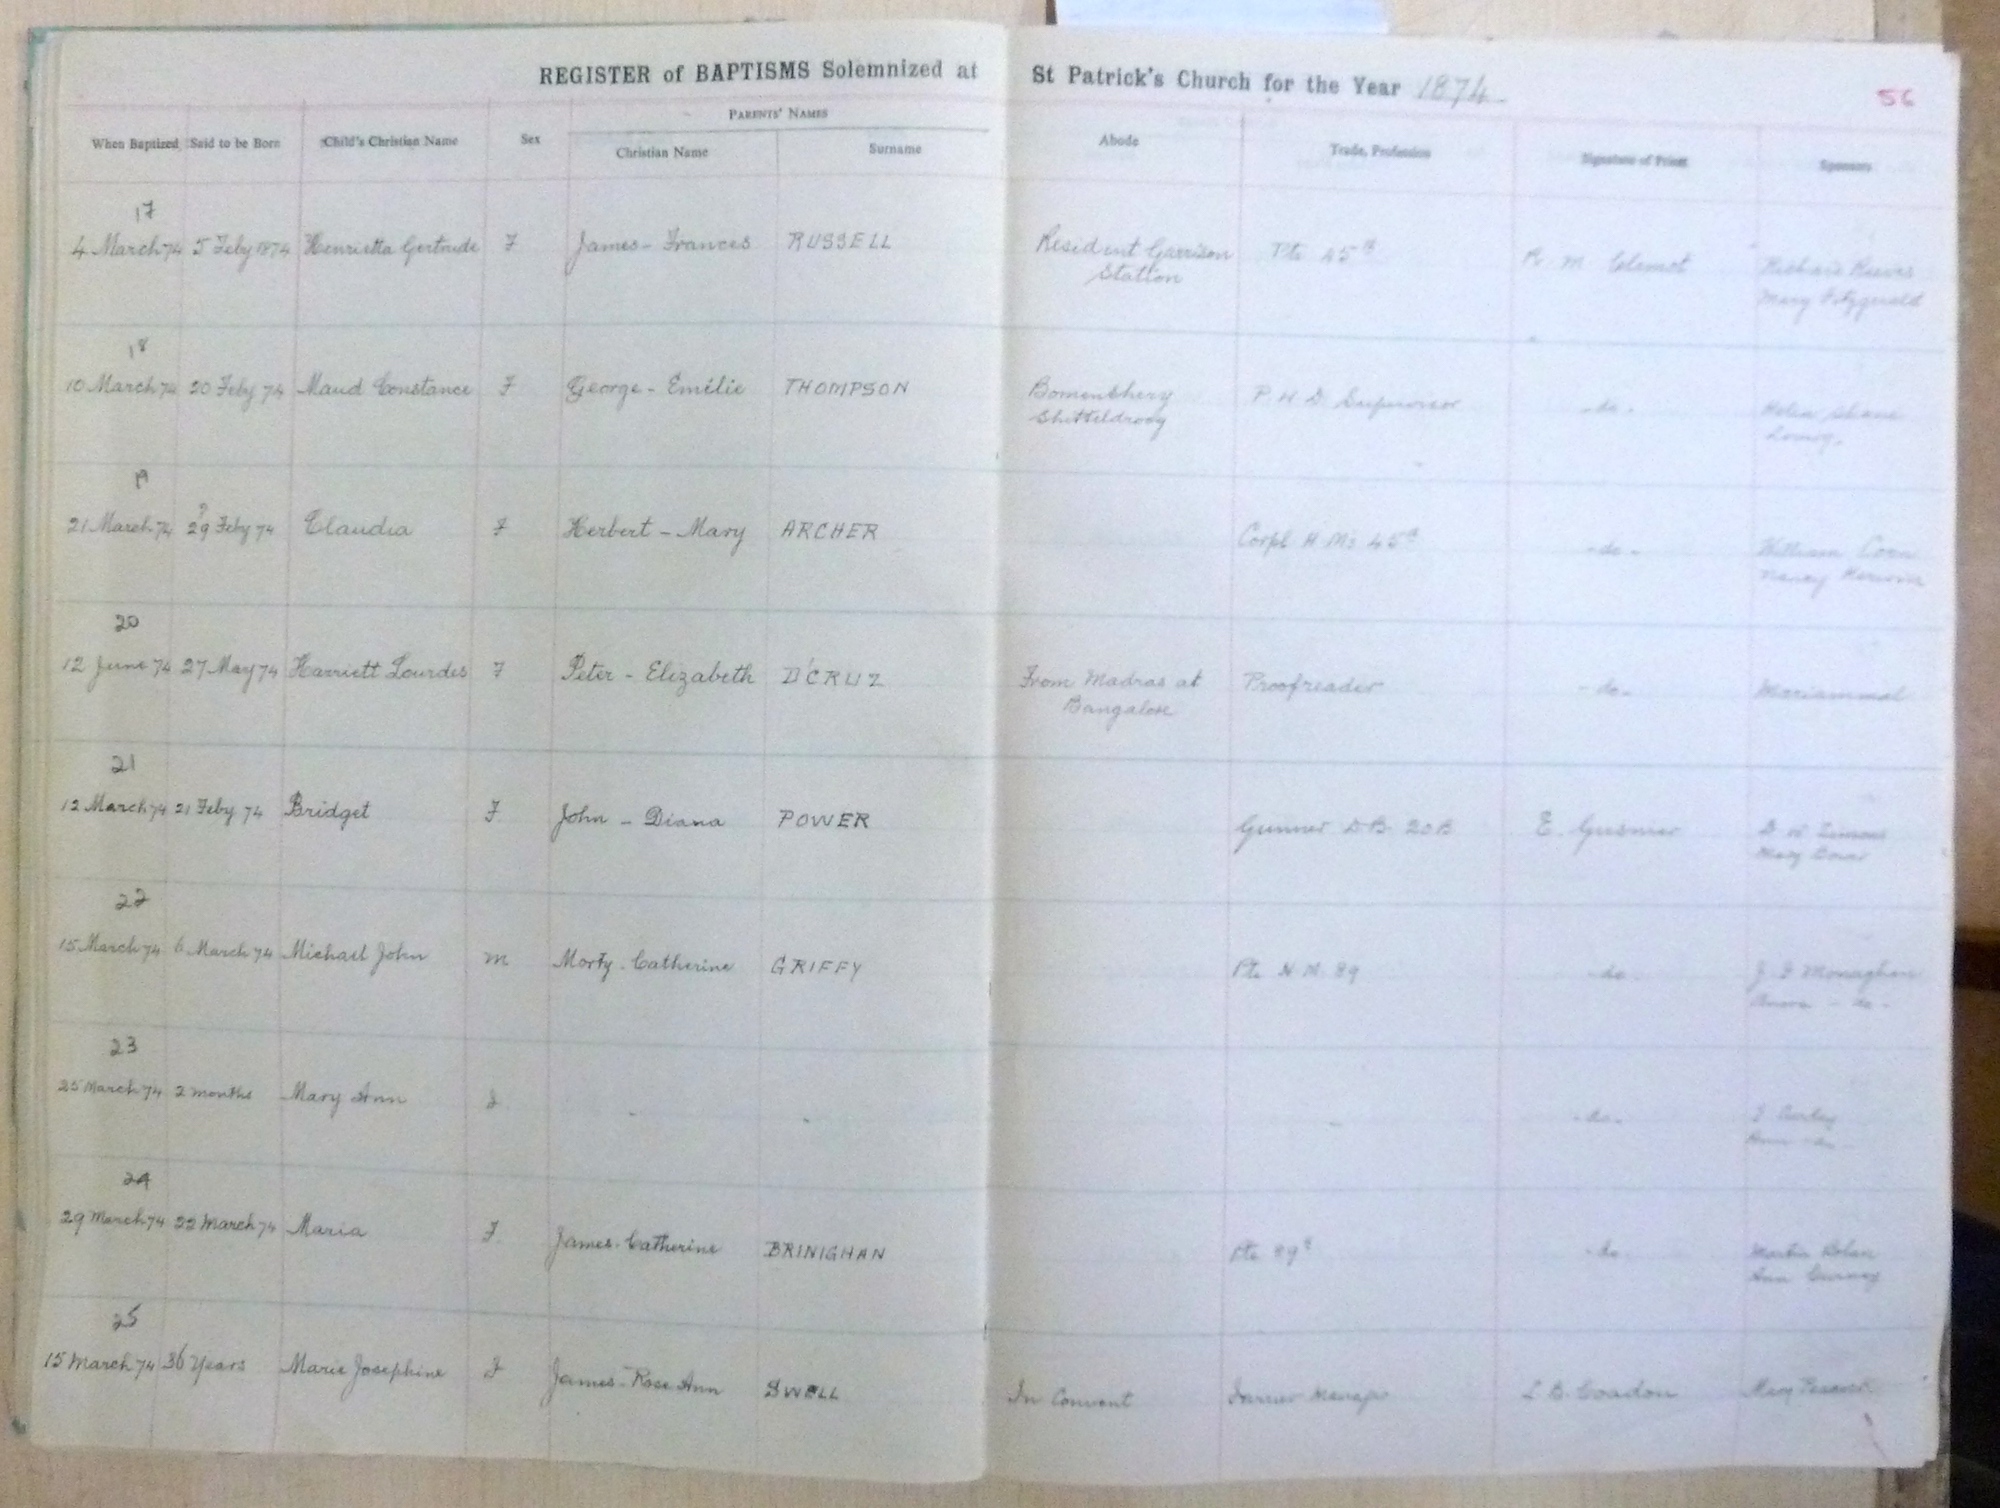 REGISTER of BAPTISMS Solemnized at St Patrick's Church for the Year 1874
56
When Baptized Said to be Born Child's Christian Name Sex PARENTS' NAMES Christian Name Surname Abode Trade, Profession Signature of Priest Sponsors
17
4 March 74 5 Feby 1874 Henrietta Gertrude F James - Frances RUSSELL Resident Garrison Pte 45th R. M.
Station Mary Fitzgerald
18
10 March 74 20 Feby 74 Maud Constance F George - Emélie THOMPSON P.W.D. Supervisor - do -
19
?
21 March 74 29 Feby 74 Claudia F Herbert - Mary ARCHER Corpl H.M's 45th - do - William
Nancy
20
12 June 74 27 May 74 Harriett Lourdes F Peter - Elizabeth D'CRUZ From Madras at Proofreader - do - Mariammal
Bangalore
21
12 March 74 21 Feby 74 Bridget F. John - Diana POWER Gunner 20 B E.
Mary
22
15 March 74 6 March 74 Michael John m Morty. Catherine GRIFFY Pte H.M. 89 - do - Monaghan
- do -
23
25 March 74 2 months Mary Ann - do -
24
29 March 74 22 March 74 Maria F. James-Catherine BRINIGHAN Pte 89th - do - Martin
Ann
25
15 March 74 36 Years Marie Josephine F James-Rose Ann SWELL In Convent L.B. Coadou Mary